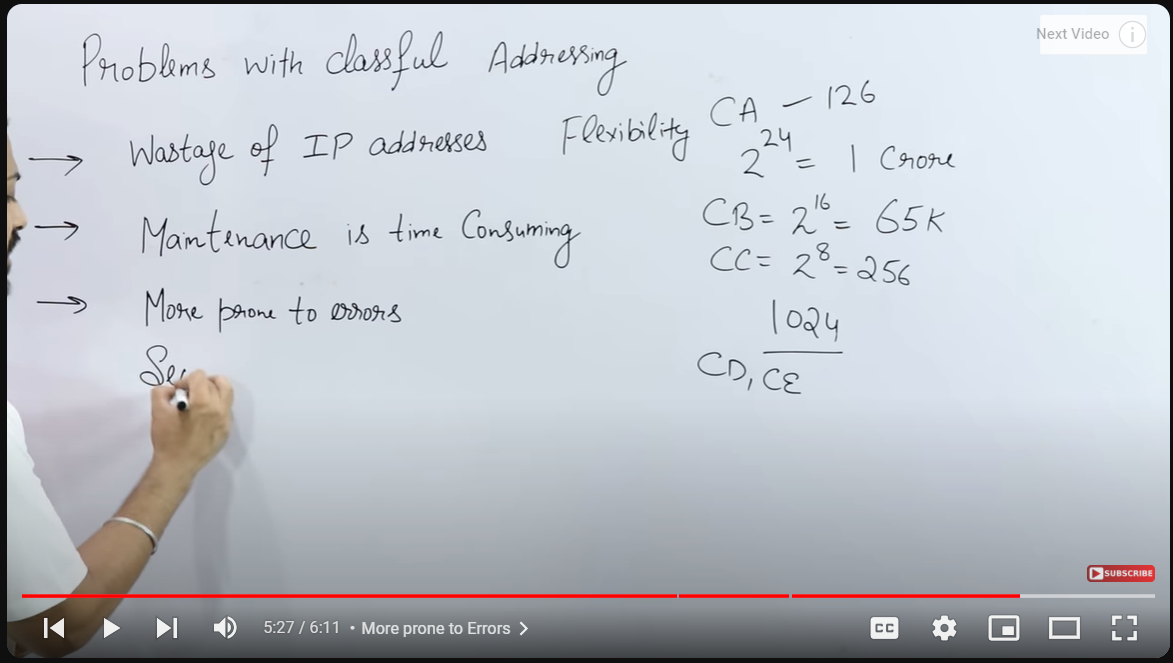 Next Video
Problems with Classful Addressing
Wastage of IP addresses
Flexibility
Maintenance is time Consuming
More prone to errors
Se
CA – 126
2^24 = 1 Crore
CB = 2^16 = 65K
CC = 2^8 = 256
1024
CD, CE
SUBSCRIBE
5:27 / 6:11 • More prone to Errors >
CC